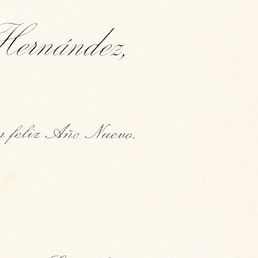 Hernández,
feliz Año Nuevo.